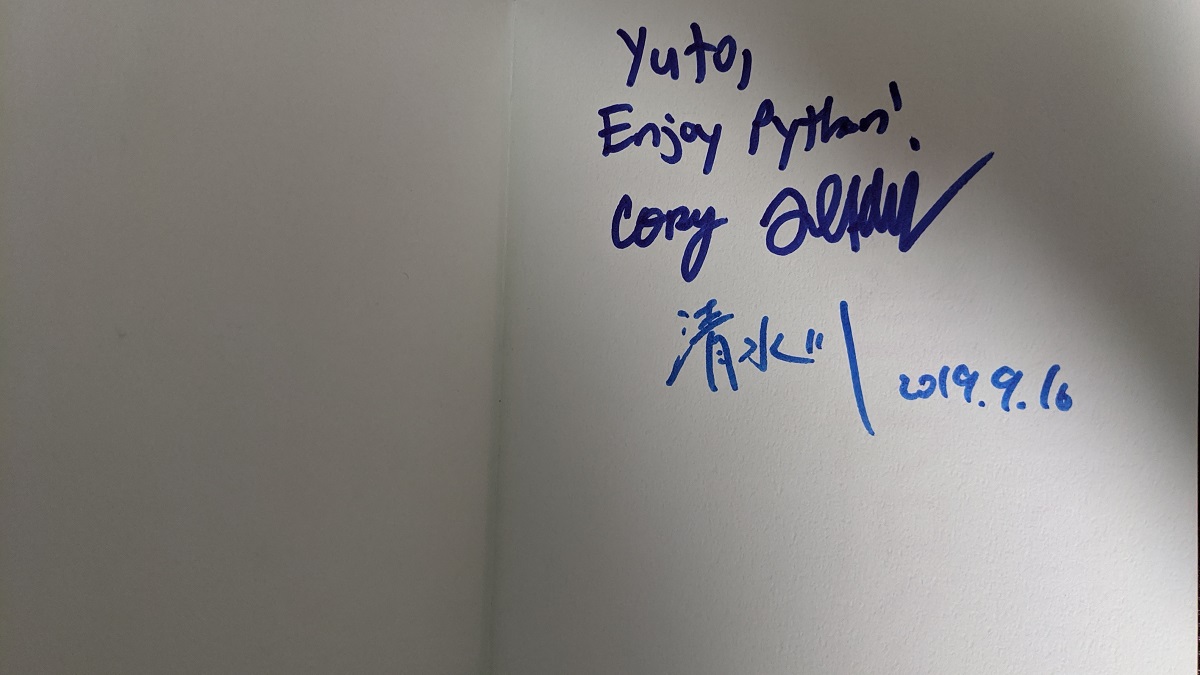 Yuto,
Enjoy Python!
Cory
清水川
2019.9.16